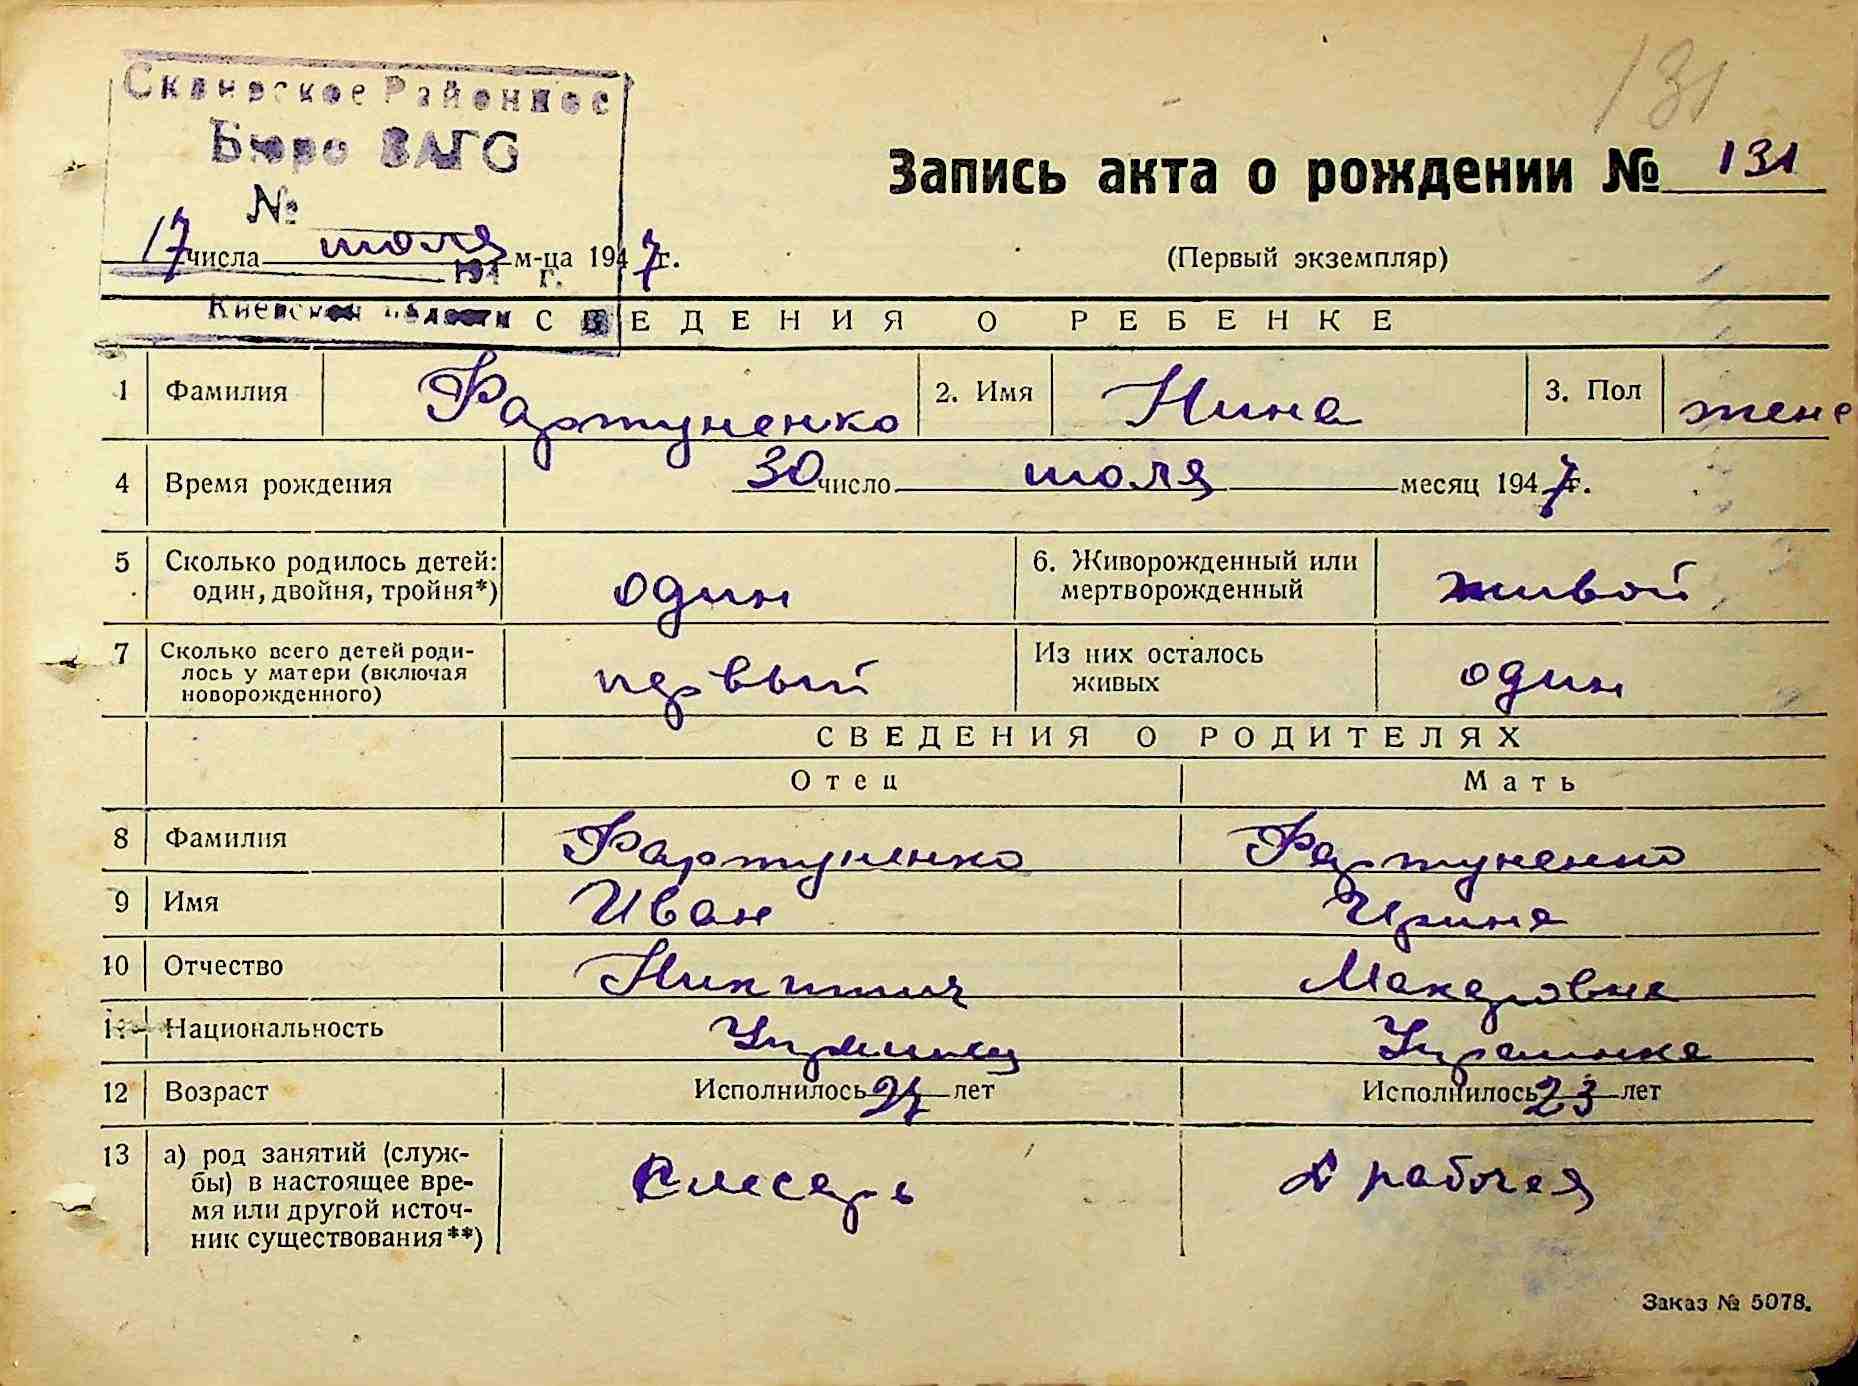 131
Сквирское Районное
Бюро ЗАГС
№
17 числа июля м-ца 1947 г.
194 г.
Киевской области
Запись акта о рождении № 131
(Первый экземпляр)
СВЕДЕНИЯ О РЕБЕНКЕ
1 Фамилия Фартуненко 2. Имя Нина 3. Пол жене
4 Время рождения 30 число июля месяц 1947 г.
5 Сколько родилось детей: один, двойня, тройня*) один 6. Живорожденный или мертворожденный живой
7 Сколько всего детей родилось у матери (включая новорожденного) первый Из них осталось живых один
СВЕДЕНИЯ О РОДИТЕЛЯХ
Отец Мать
8 Фамилия Фартуненко Фартуненко
9 Имя Иван Ирина
10 Отчество Никитич Макаровна
11 Национальность Украинец Украинка
12 Возраст Исполнилось 27 лет Исполнилось 23 лет
13 а) род занятий (служ-
бы) в настоящее вре-
мя или другой источ-
ник существования**)
Слесарь рабочая
Заказ № 5078.